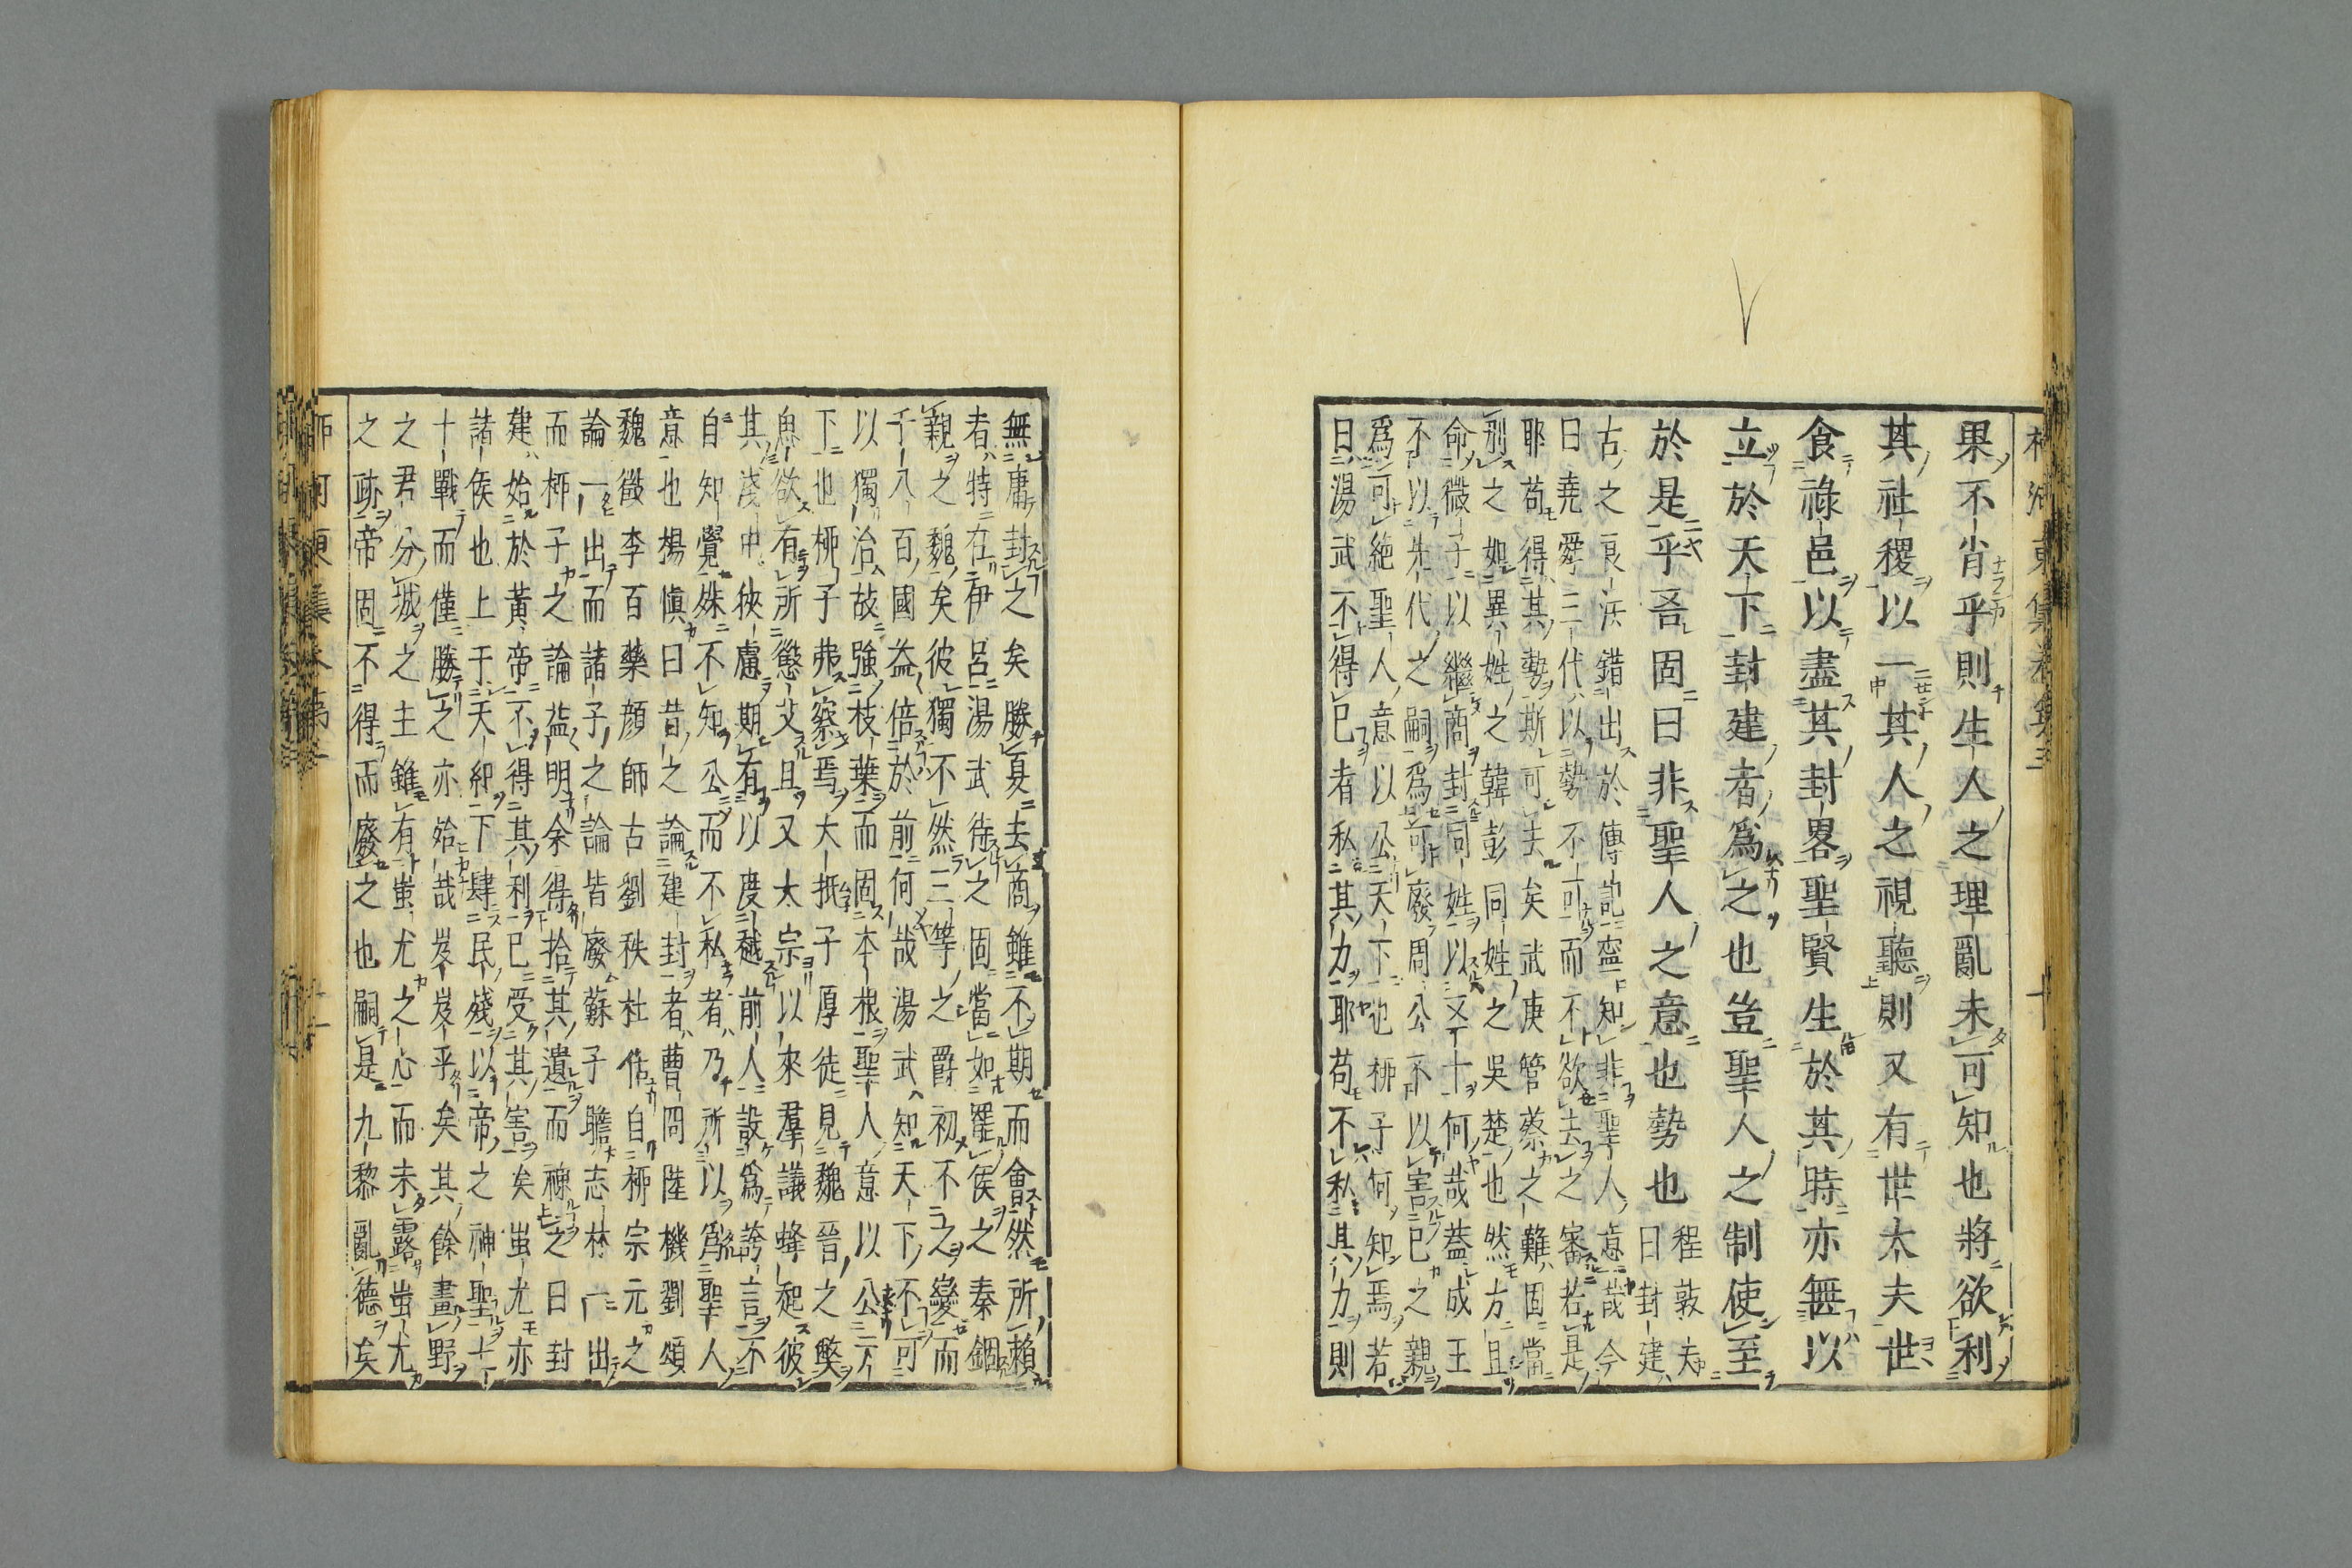 果不肖乎則生人之理亂未可知也將欲利
其社稷以一其人之視聽則又有世太夫世
食祿邑以盡其封畧聖賢生於其時亦無以
立於天下封建者爲之也豈聖人之制使至
於是乎吾固曰非聖人之意也勢也
程敦夫
曰封建
古之良法錯出於傳記寧知非聖人意哉今
曰堯舜三代以勢不可而不欲去之審若是
耶苟得其勢斯可去矣武庚管蔡之難固當
別之如異姓之韓彭同姓之吳楚也然方且
命微子以繼商封同姓以又十何哉蓋成王
不以先代之嗣爲可廢周公不以害已之親
爲可絶聖人意以公天下也柳子何知焉若
曰湯武不得已者私其力耶苟不私其力則
無庸封之矣勝夏去商雖不期而會然所賴
者特在伊呂湯武待之固當如罷侯之秦錮
親之魏矣彼獨不然三等之爵初不之變而
千八百國益倍於前何哉湯武知天下不可
以獨治故強枝葉而固本根聖人意以公天
下也柳子弗察焉大抵子厚徒見魏晉之弊
思欲有所懲艾且又太宗以來羣議蜂起彼
其淺中狹慮期有以度越前人設爲誇言不
自知覺殊不知公而不私者乃所以爲聖人
意也楊愼曰昔之論建封者曹冏陸機劉頌
魏徵李百藥顏師古劉秩杜佑自柳宗元之
論一出而諸子之論皆廢蘇子瞻志林一出
而柳子之論益明余得拾其遺而裨之曰封
建始於黃帝不得其利已受其害矣蚩尤亦
諸侯也上于天紀下肆民殘以帝之神聖七
十戰而僅勝之亦殆哉岌岌乎矣其餘畫野
之君分城之主雖有蚩尤之心而未露蚩尤
之跡帝固不得而廢之也嗣是九黎亂德矣